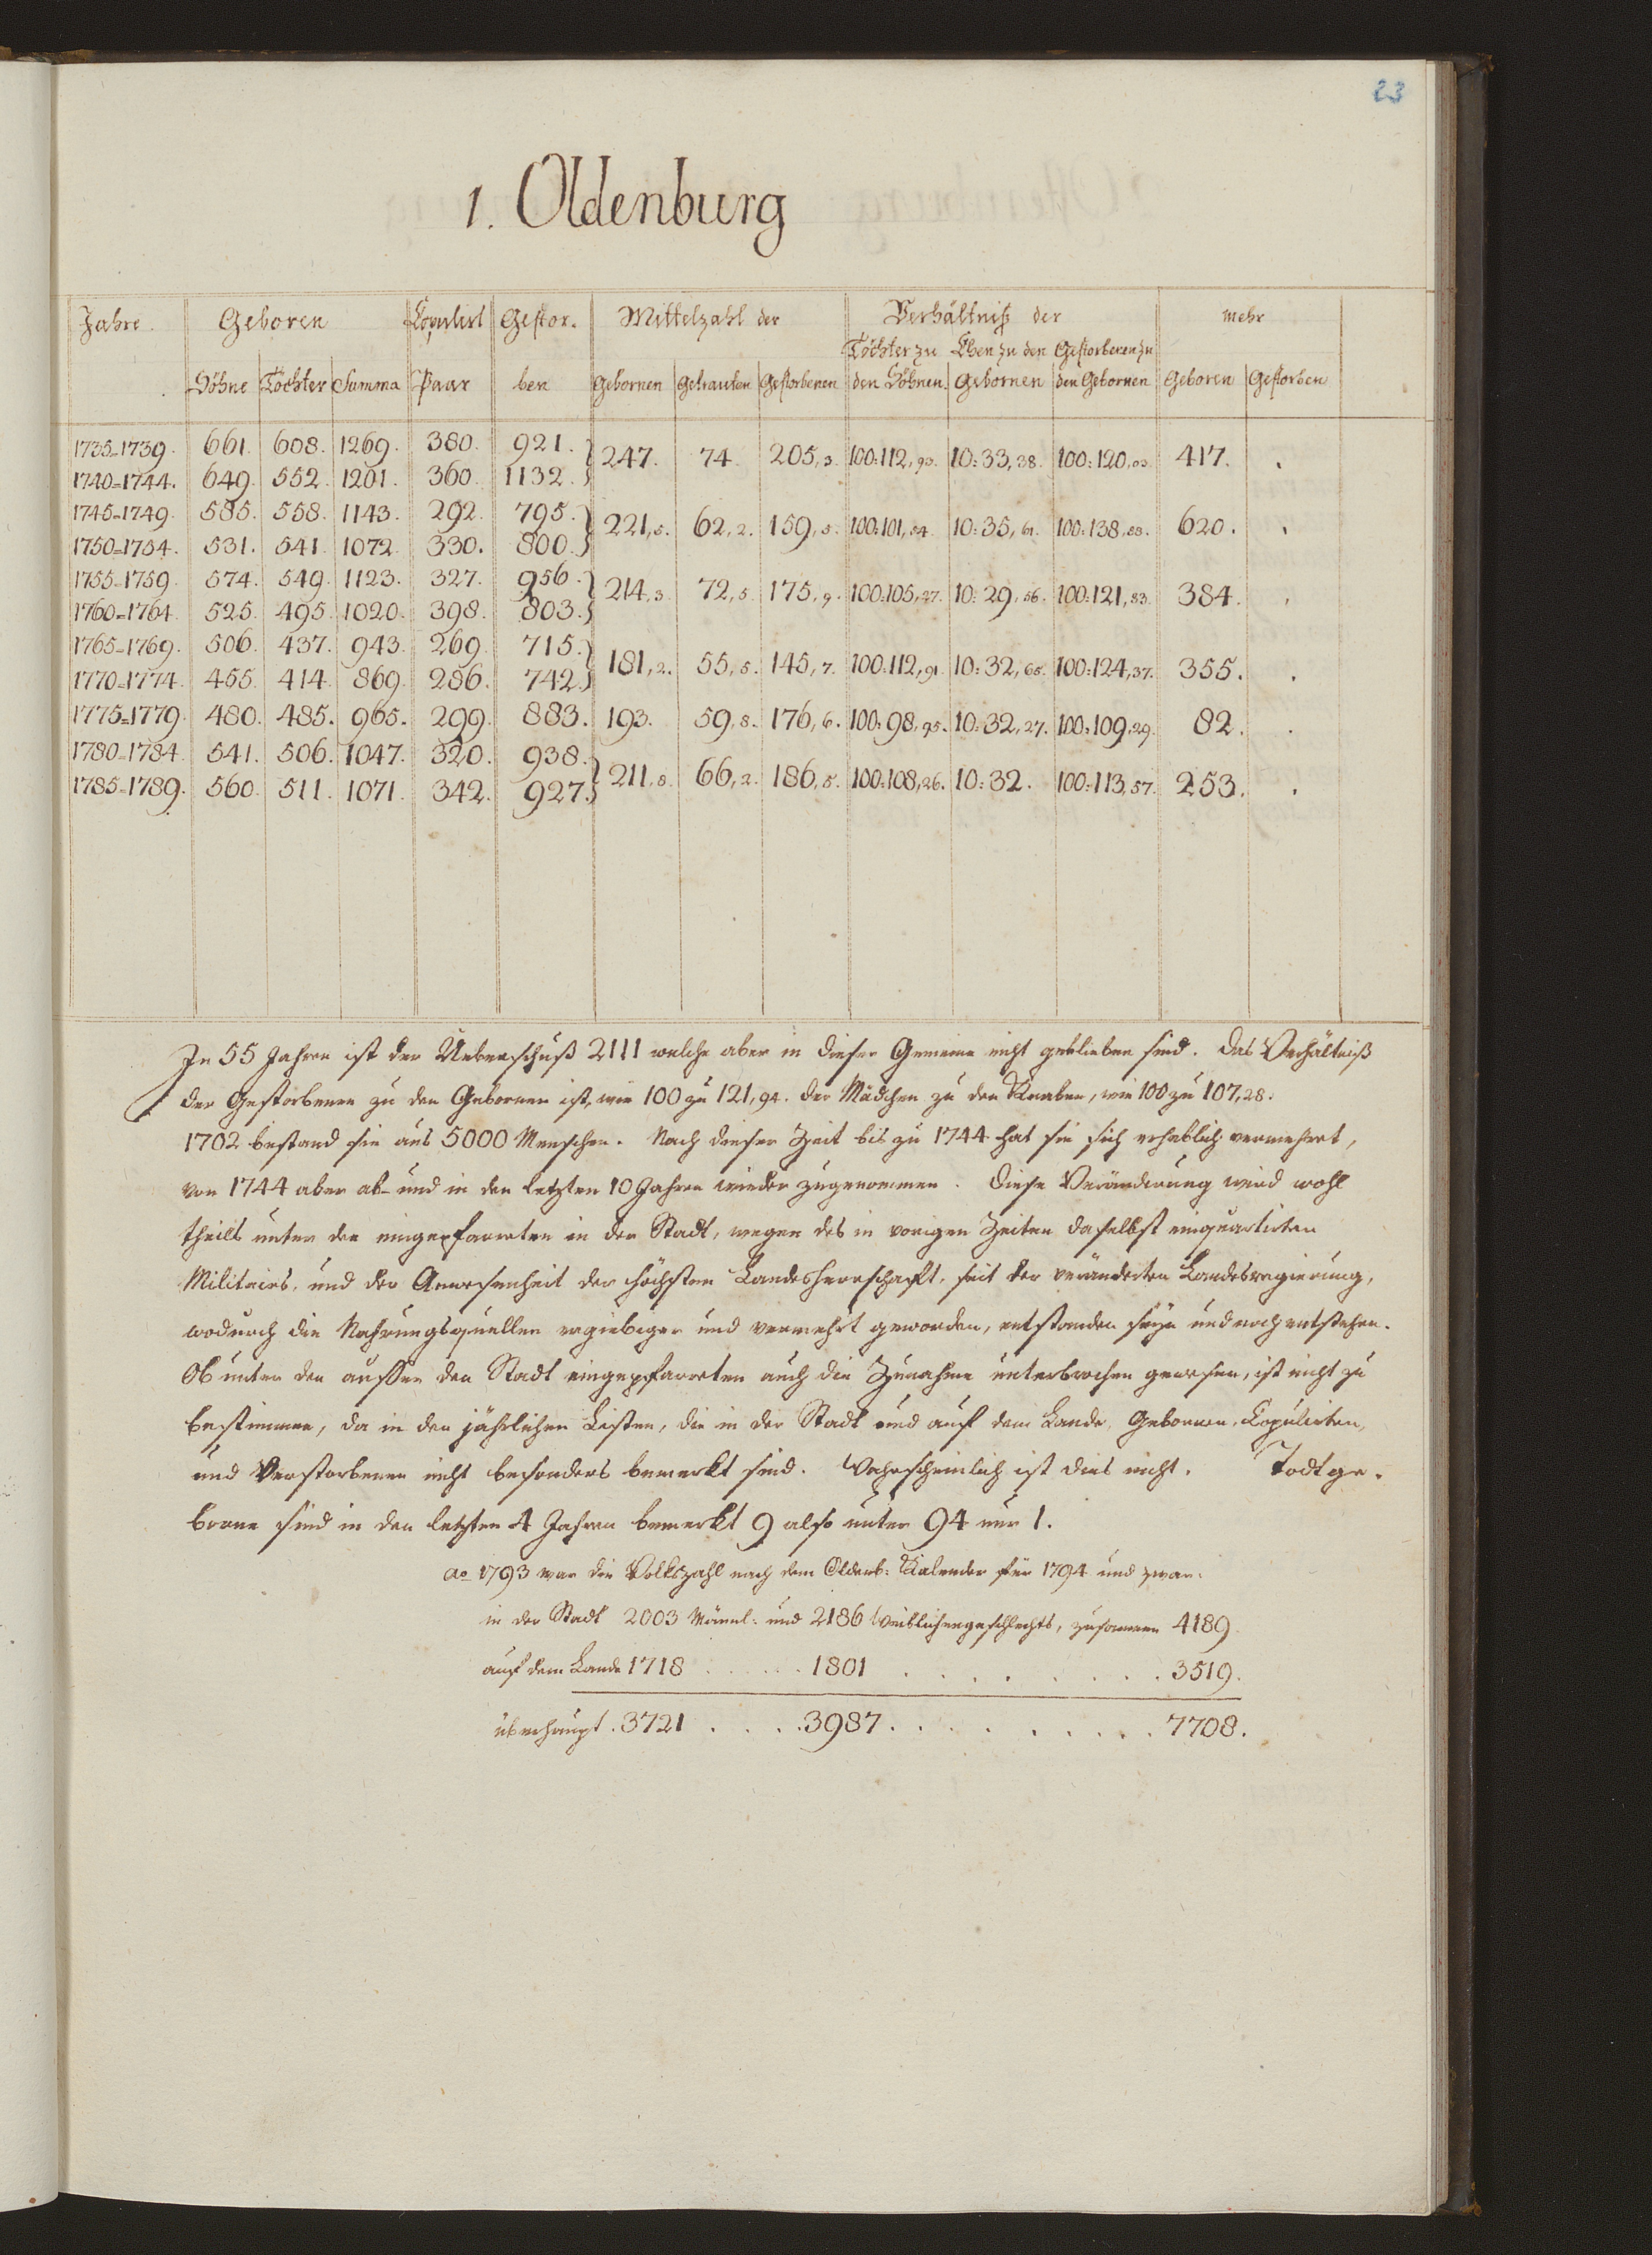 23
1. Oldenburg
Jahre. Geboren Copulirt Gestor. Mittelzahl der Verhältniß der mehr
Töchter zu Ehen zu den Gestorbenen zu
Söhne Töchter Summa Paar ben Gebornen Getrauten Gestorbenen den Söhnen. Gebornen den Gebornen Geboren Gestorben
1735=1739. 661. 608. 1269. 380. 921. 247. 74. 205,3. 100:112,93. 10:33,38. 100:120,03. 417. .
1740=1744. 649. 552. 1201. 360. 1132.
1745=1749. 585. 558. 1143. 292. 795. 221,5. 62,2. 159,5. 100:101,54. 10:35,61. 100:138,88. 620. .
1750=1754. 531. 541. 1072. 330. 800.
1755=1759. 574. 549. 1123. 327. 956. 214,3. 72,5. 175,9. 100:105,27. 10:29,56. 100:121,83. 384. .
1760=1764. 525. 495. 1020. 398. 803.
1765=1769. 506. 437. 943. 269. 715. 181,2. 55,5. 145,7. 100:112,91. 10:32,65. 100:124,37. 355. .
1770=1774. 455. 414. 869. 286. 742.
1775=1779. 480. 485. 965. 299. 883. 193. 59,8. 176,6. 100:98,95. 10:32,27. 100:109,29. 82. .
1780=1784. 541. 506. 1047. 320. 938. 211,8. 66,2. 186,5. 100:108,26. 10:32. 100:113,57. 253. .
1785=1789. 560. 511. 1071. 342. 927.
In 55 Jahren ist der Ueberschuß 2111 welche aber in dieser Gemeine nicht geblieben sind. Das Verhältniß
der Gestorbenen zu den Gebornen ist, wie 100 zu 121,94. der Mädchen zu den Knaben, wie 100 zu 107,28.
1702 bestand sie aus 5000 Menschen. Nach dieser Zeit bis zu 1744 hat sie sich erheblich vermehrt,
von 1744 aber ab- und in den letzten 10 Jahren wieder zugenommen. Diese Veränderung wird wohl
theils unter den eingepfarreten in der Stadt, wegen des in vorigen Zeiten daselbst einquartirten
Militairs, und der Anwesenheit der höchsten Landesherrschaft, seit der veränderten Landesregierung,
wodurch die Nahrungsquellen ergiebiger und vermehrt geworden, entstanden seyn und noch entstehen.
Ob unter den ausser der Stadt eingepfarreten auch die Zunahme unterbrochen gewesen, ist nicht zu
bestimmen, da in den jährlichen Listen, die in der Stadt und auf dem Lande, Gebornen, Copulirten,
und Verstorbenen nicht besonders bemerkt sind. Wahrscheinlich ist dies nicht. Todtge-
borne sind in den letzten 4 Jahren bemerkt 9 also unter 94 nur 1.
ao 1793 war die Volkszahl nach dem Oldenb: Kalender für 1794 und zwar:
in der Stadt 2003 Männl: und 2186 Weiblichengeschlechts, zusammen 4189
auf dem Lande 1718 . . . . . 1801 . . . . . . . . 3519.
überhaupt . 3721 . . . . 3987. . . . . . . . . 7708.